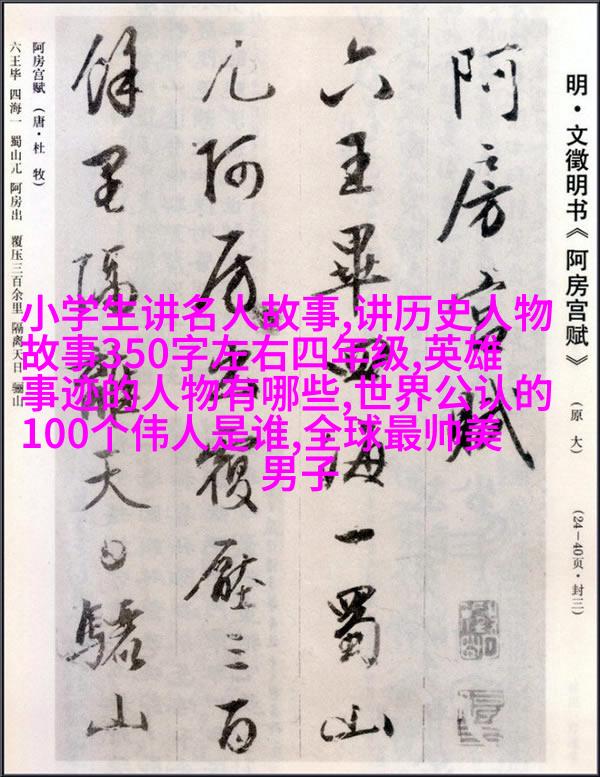 明·文徵明书《阿房宫赋》
(原大)
(24—40页·封三)
阿房宫赋
六王畢四海一蜀山
兀阿房出覆壓三百
餘里隔離天日驪山
阿房宫赋(唐·杜 牧)
六王毕 四海一 蜀山兀 阿房出 覆压三百余里 隔离天日 骊山
小学生讲名人故事,讲历史人物
故事350字左右四年级,英雄
事迹的人物有哪些,世界公认的
100个伟人是谁,全球最帅美
男子